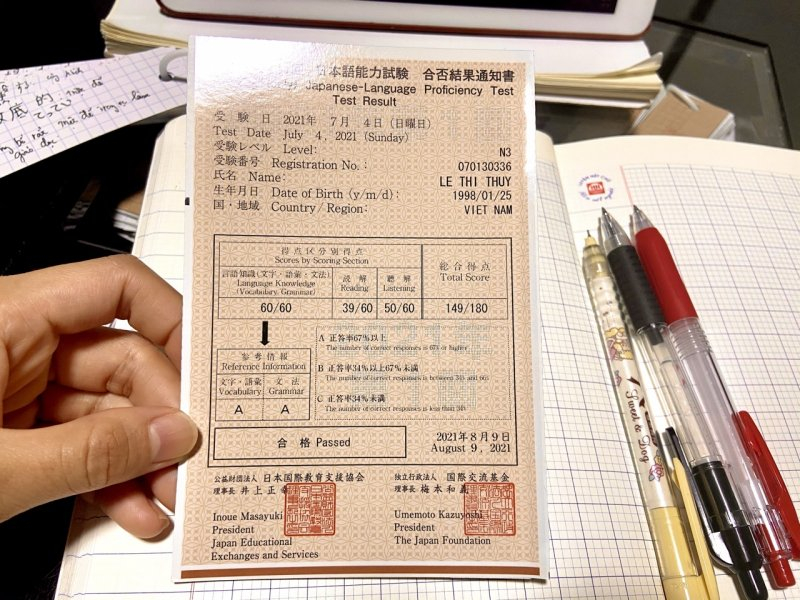 日本語能力試験 合否結果通知書
Japanese-Language Proficiency Test
Test Result
受験日 2021年 7月 4日(日曜日)
Test Date July 4, 2021 (Sunday)
受験レベル Level: N3
受験番号 Registration No.: 070130336
氏名 Name: LE THI THUY
生年月日 Date of Birth (y/m/d): 1998/01/25
国・地域 Country/Region: VIET NAM
得点区分別得点
Scores by Scoring Section
総合得点
Total Score
言語知識(文字・語彙・文法)
Language Knowledge
(Vocabulary/Grammar)
読解
Reading
聴解
Listening
60/60 39/60 50/60 149/180
参考情報
Reference Information
文字・語彙
Vocabulary
文法
Grammar
A A
A 正答率67%以上
The number of correct responses is 67% or higher
B 正答率34%以上67%未満
The number of correct responses is between 34% and 66%
C 正答率34%未満
The number of correct responses is less than 34%
合格 Passed
2021年8月9日
August 9, 2021
公益財団法人 日本国際教育支援協会
理事長 井上正幸
Inoue Masayuki
President
Japan Educational
Exchanges and Services
独立行政法人 国際交流基金
理事長 梅本和義
Umemoto Kazuyoshi
President
The Japan Foundation
Sweet is